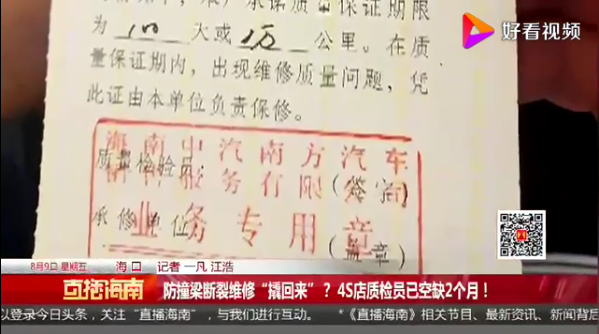 质量保证期限
为 100 天或 1万 公里。在质
量保证期内，出现维修质量问题，凭
此证由本单位负责保修。
海南中汽南方汽车
质量检验员:
服务有限
(签字)
承修单位
业务专用章
(盖章)
好看视频
8月9日 星期五
海口
记者 一凡 江浩
直播海南
防撞梁断裂维修“撬回来”？4S店质检员已空缺2个月！
以登录今日头条，关注“直播海南”，与我们进行互动。
*《直播海南》相关节目、最新资讯、新闻背后